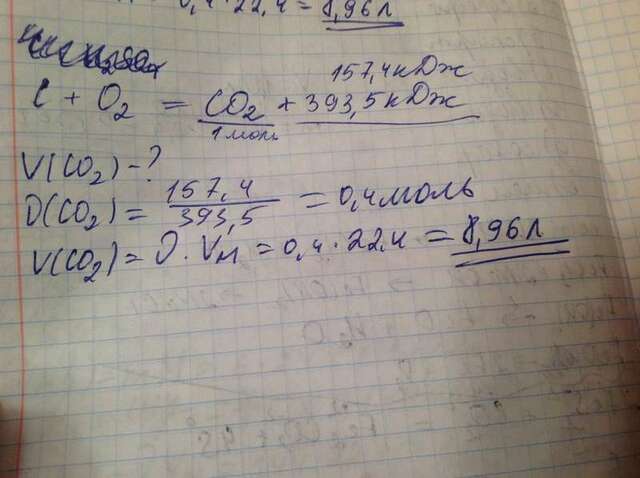 0,4·22,4=8,96л
157,4кДж
C + O2 = CO2 + 393,5кДж
1моль
V(CO2)-?
D(CO2)= 157,4/393,5 = 0,4моль
V(CO2)= D·VM = 0,4·22,4 = 8,96л